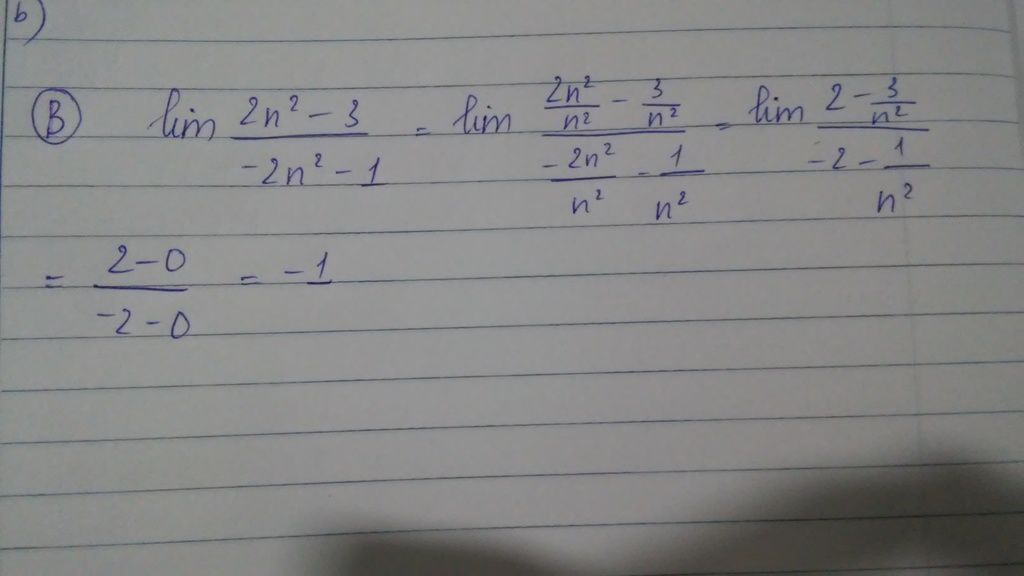 b)
B lim (2n² - 3)/(-2n² - 1) = lim (2n²/n² - 3/n²)/(-2n²/n² - 1/n²) = lim (2 - 3/n²)/(-2 - 1/n²)
= (2-0)/(-2-0) = -1